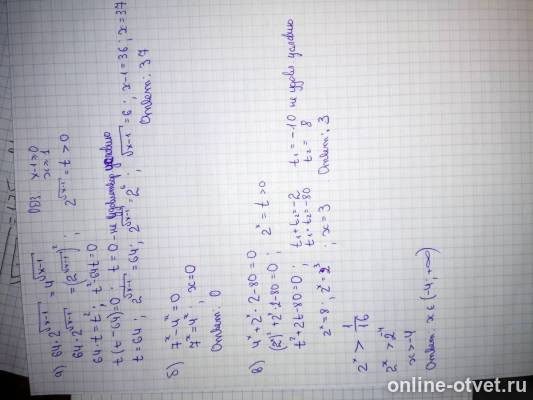 а) 64·2^√(x-1) = 4^√(x-1)   ОДЗ x-1≥0
x≥1
64·2^√(x-1) = (2^√(x-1))² ; 2^√(x-1) = t > 0
64·t = t² ; t²-64t=0
t(t-64)=0   t=0 - не удовлетвор условию
t=64 ; 2^√(x-1) = 64 ; 2^√(x-1) = 2⁶ ; √(x-1) = 6 ; x-1=36 ; x=37
Ответ: 37
б) 7ˣ-4ˣ=0
7ˣ=4ˣ ; x=0
Ответ: 0
в) 4ˣ+2ˣ·2-80=0
(2ˣ)²+2ˣ·2-80=0 ; 2ˣ=t>0
t²+2t-80=0 ; t₁+t₂=-2   t₁=-10 не удовл условию
t₁·t₂=-80   t₂=8
2ˣ=8 ; 2ˣ=2³ ; x=3   Ответ: 3
2ˣ > 1/16
2ˣ > 2⁻⁴
x>-4
Ответ: x∈(-4, +∞)
online-otvet.ru